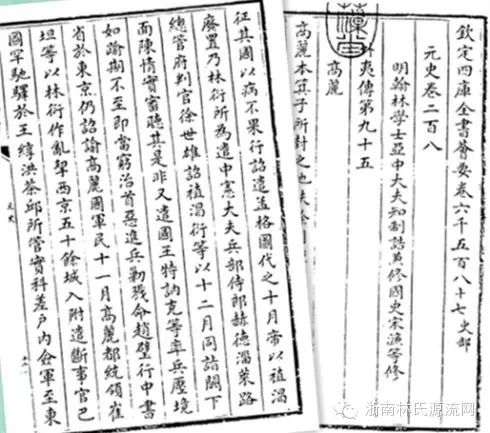 欽定四庫全書薈要卷六千五百八十七 史部
元史卷二百八
明翰林學士亞中大夫知制誥兼修國史宋濂等修
夷傳第九十五
高麗
高麗本箕子所封之地
征其國以病不果行詔遣孟格圖代之十月帝以禃淐
廢置乃林衍所為遣中憲大夫兵部侍郎赫德淄萊路
總管府判官徐世雄詔禃淐衍等以十二月同詣闕下
面陳情實審聽其是非又遣國王特訥克等率兵壓境
如踰期不至即當窮治首惡進兵勦戮命趙璧行中書
省於東京仍詔諭高麗國軍民十一月高麗都統領崔
坦等以林衍作亂挈西京五十餘城入附遣斷事官巴
圖罕馳驛於王綧洪茶邱所管實科差戶内僉軍至東
浙南林氏源流网